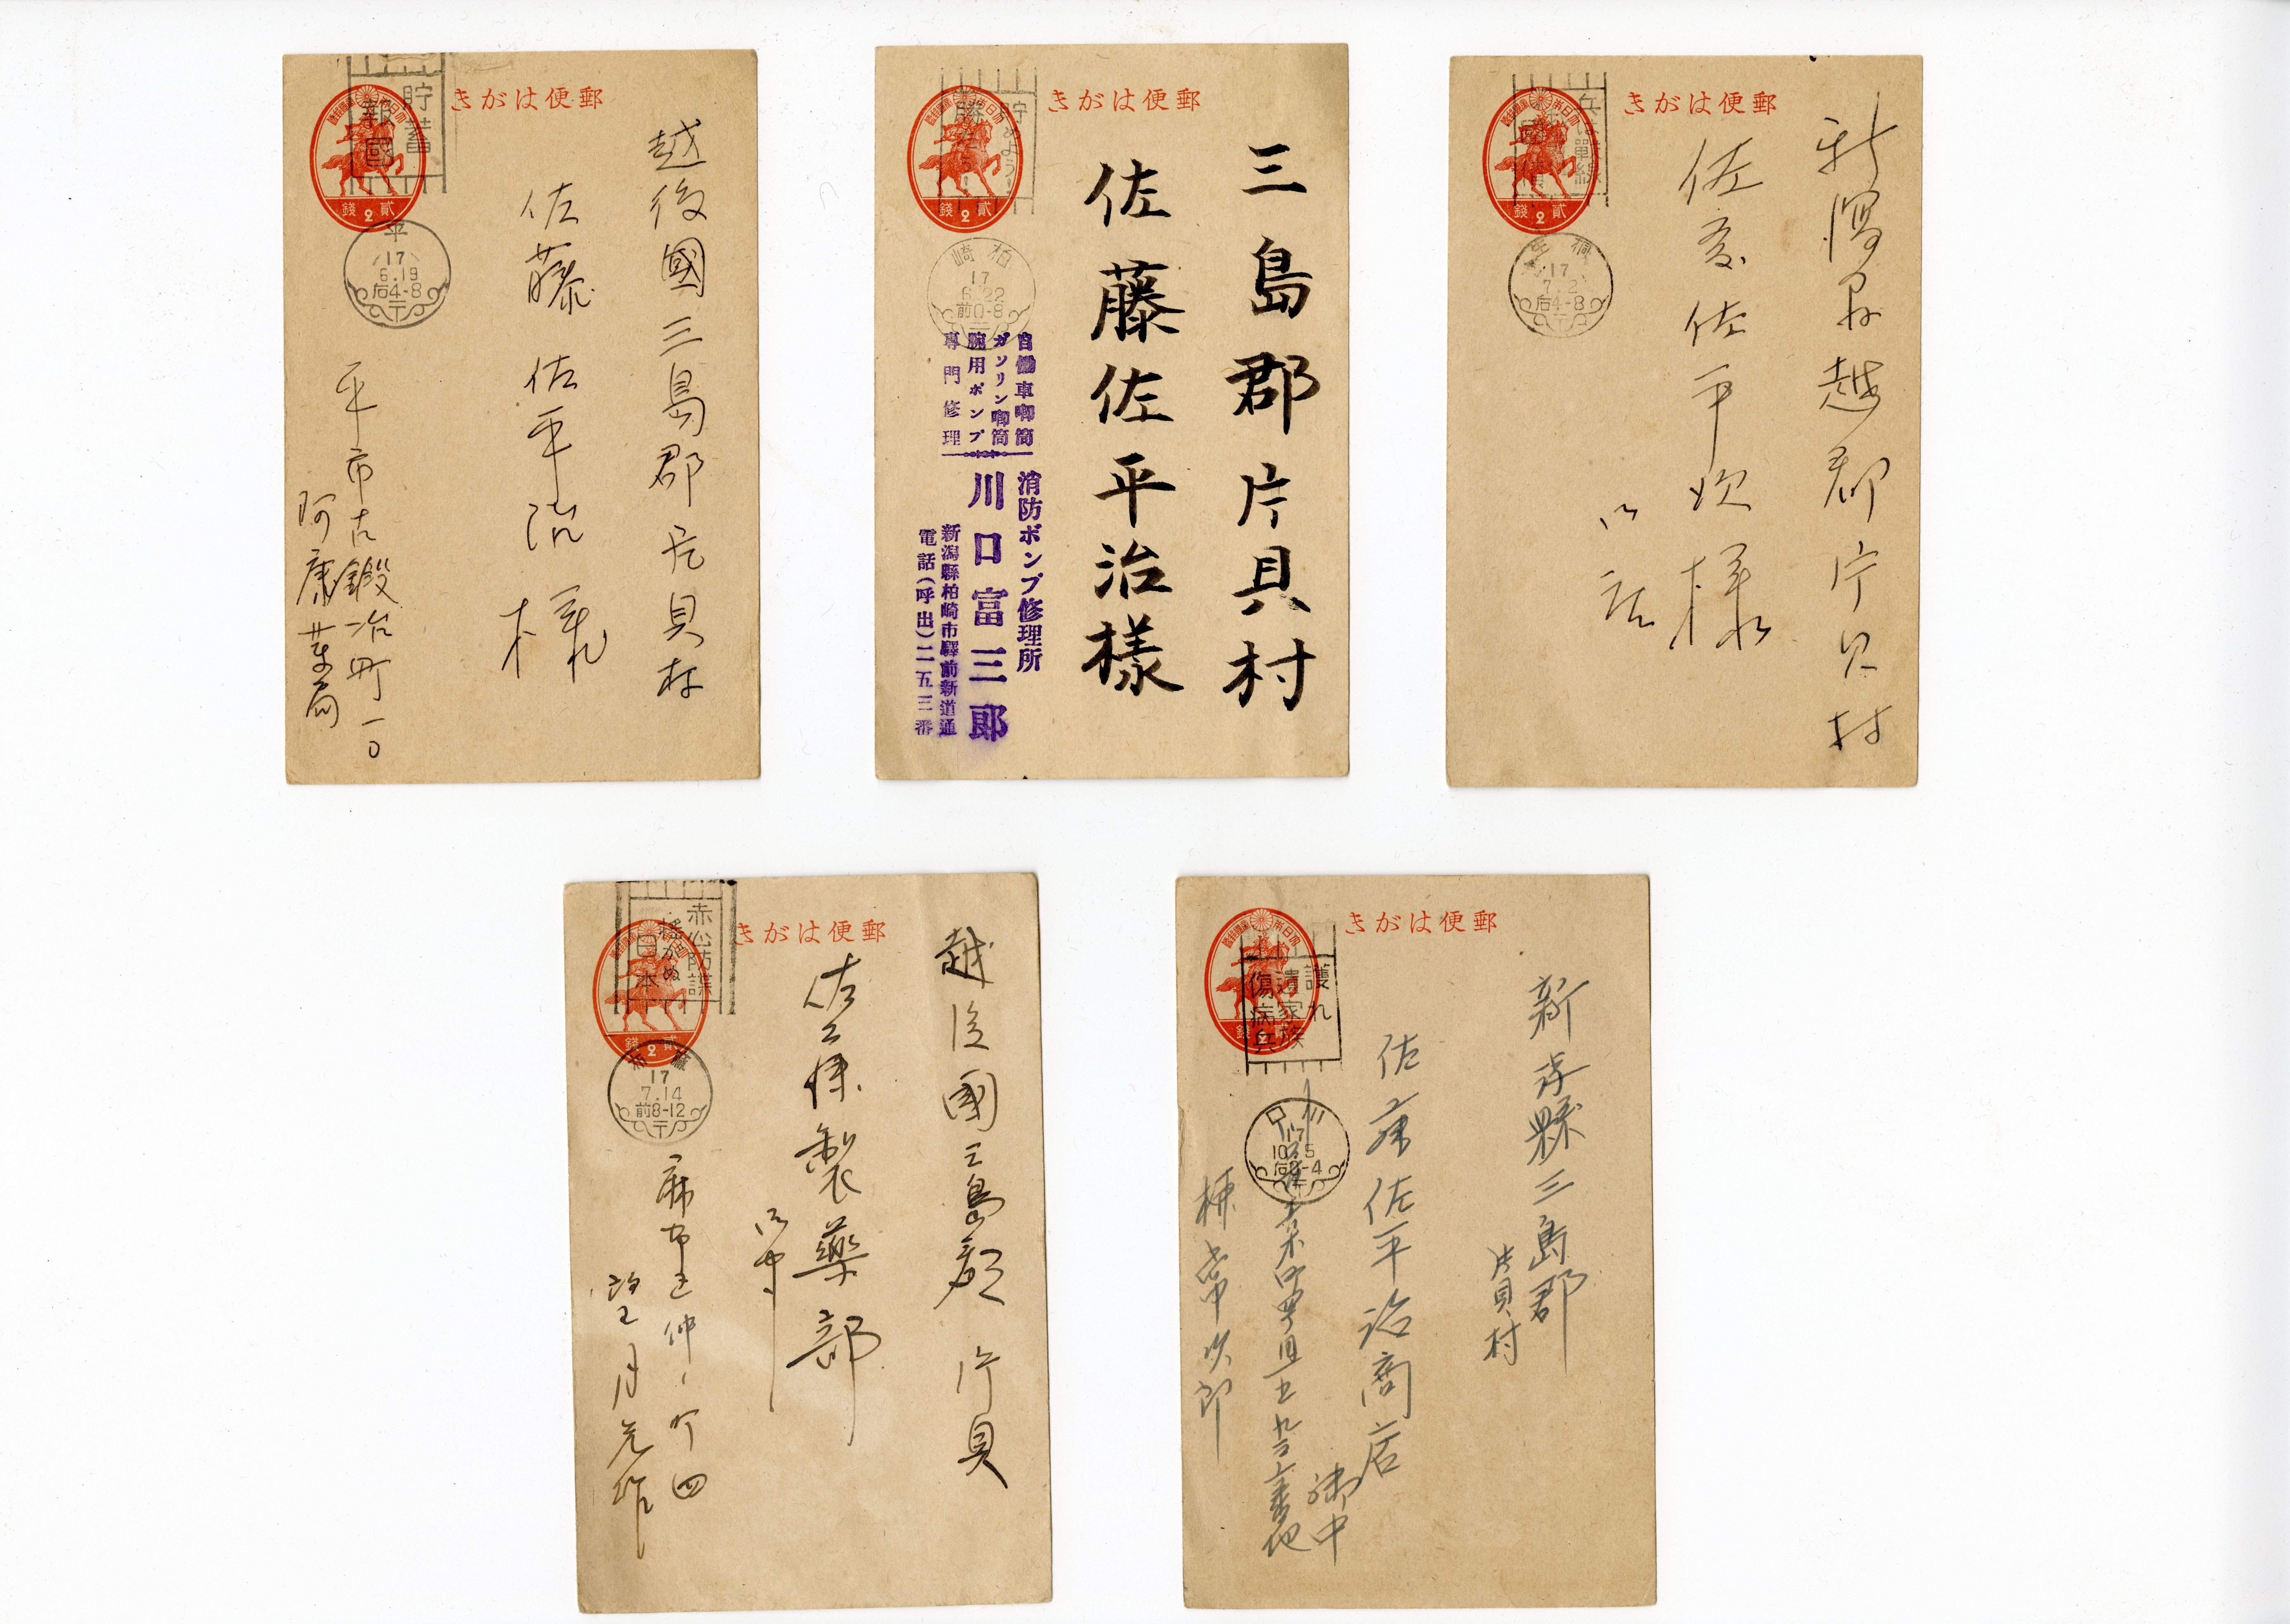 きがは便郵
貯蓄
報國
錢2貳
平
17
6.19
后4-8
越後國三島郡片貝村
佐藤佐平治様
平市古鍛冶町一〇
阿康薬局
きがは便郵
貯めよう
勝
錢2貳
崎柏
17
6.22
前0-8
三島郡片貝村
佐藤佐平治様
自働車喞筒
ガソリン喞筒
腕用ポンプ
專門修理
消防ポンプ修理所
川口富三郎
新潟縣柏崎市驛前新道通
電話(呼出)二五三番
きがは便郵
兵は單線
錢2貳
生桐
17
7.2
后4-8
新潟県越郡片貝村
佐藤佐平次様
きがは便郵
赤心防諜
揺がぬ
日本
錢2貳
布麻
17
7.14
前8-12
越後國三島郡片貝
佐藤製藥部
御中
麻布区仲ノ町四
望月
きがは便郵
護れ
遺家族
傷病兵
口川
17
10.5
后0-4
新潟縣三島郡
片貝村
佐藤佐平治商店
御中
町四丁目五九二番地
次郎